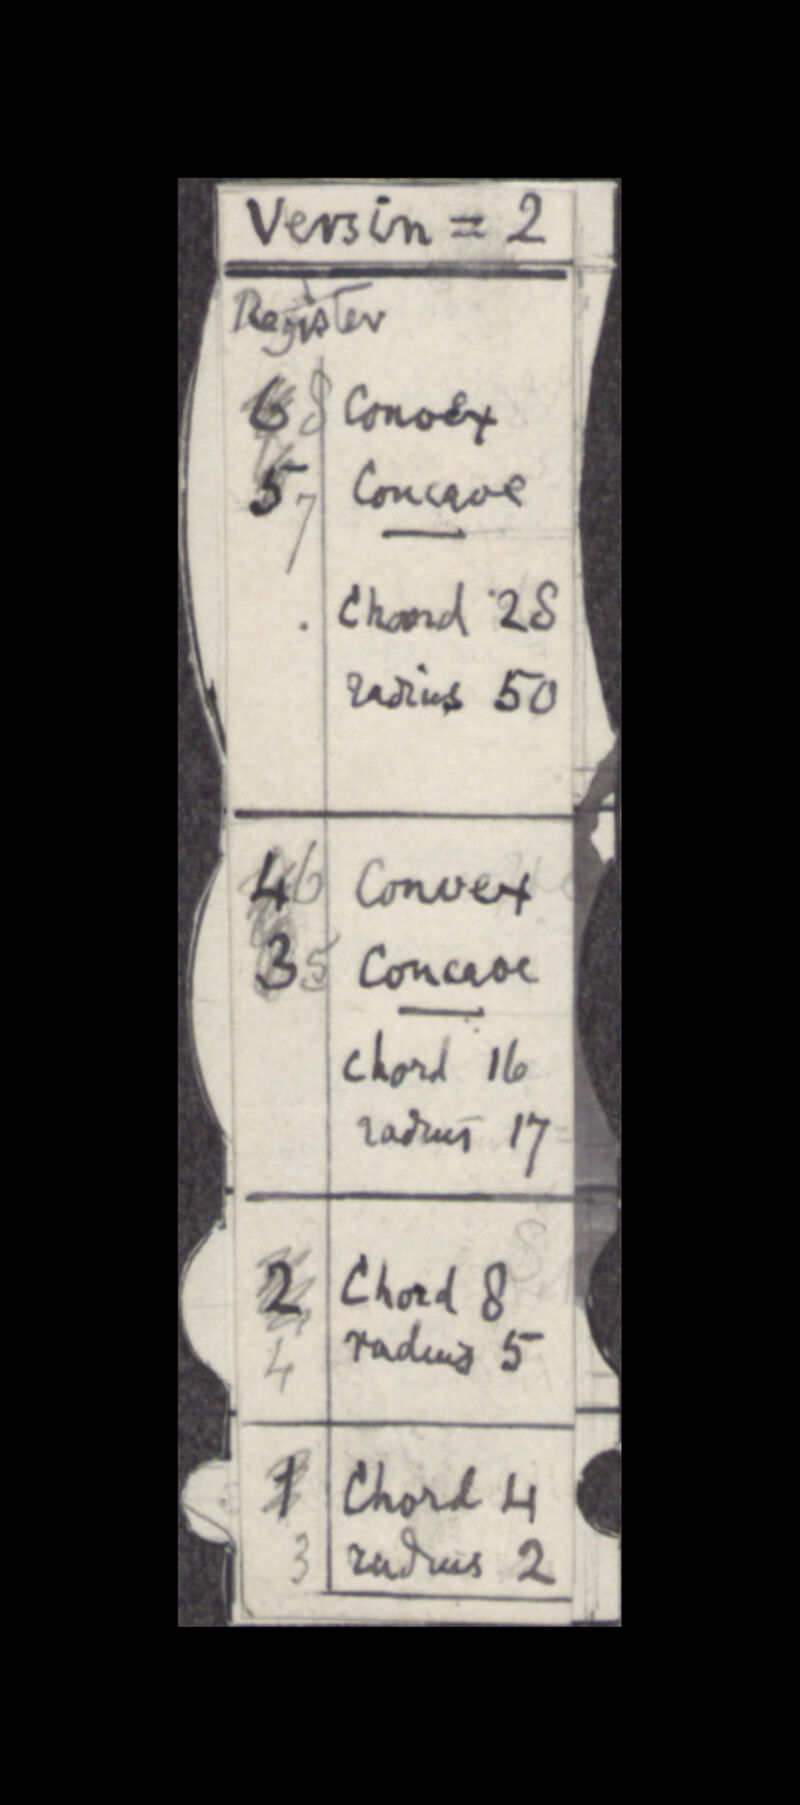 Versin = 2
Register
6 8 Convex
5 7 Concave
Choord 28
radius 50
4 6 Convex
3 5 Concave
chord 16
radius 17
2 Chord 8
4 radius 5
1 Chord 4
3 radius 2